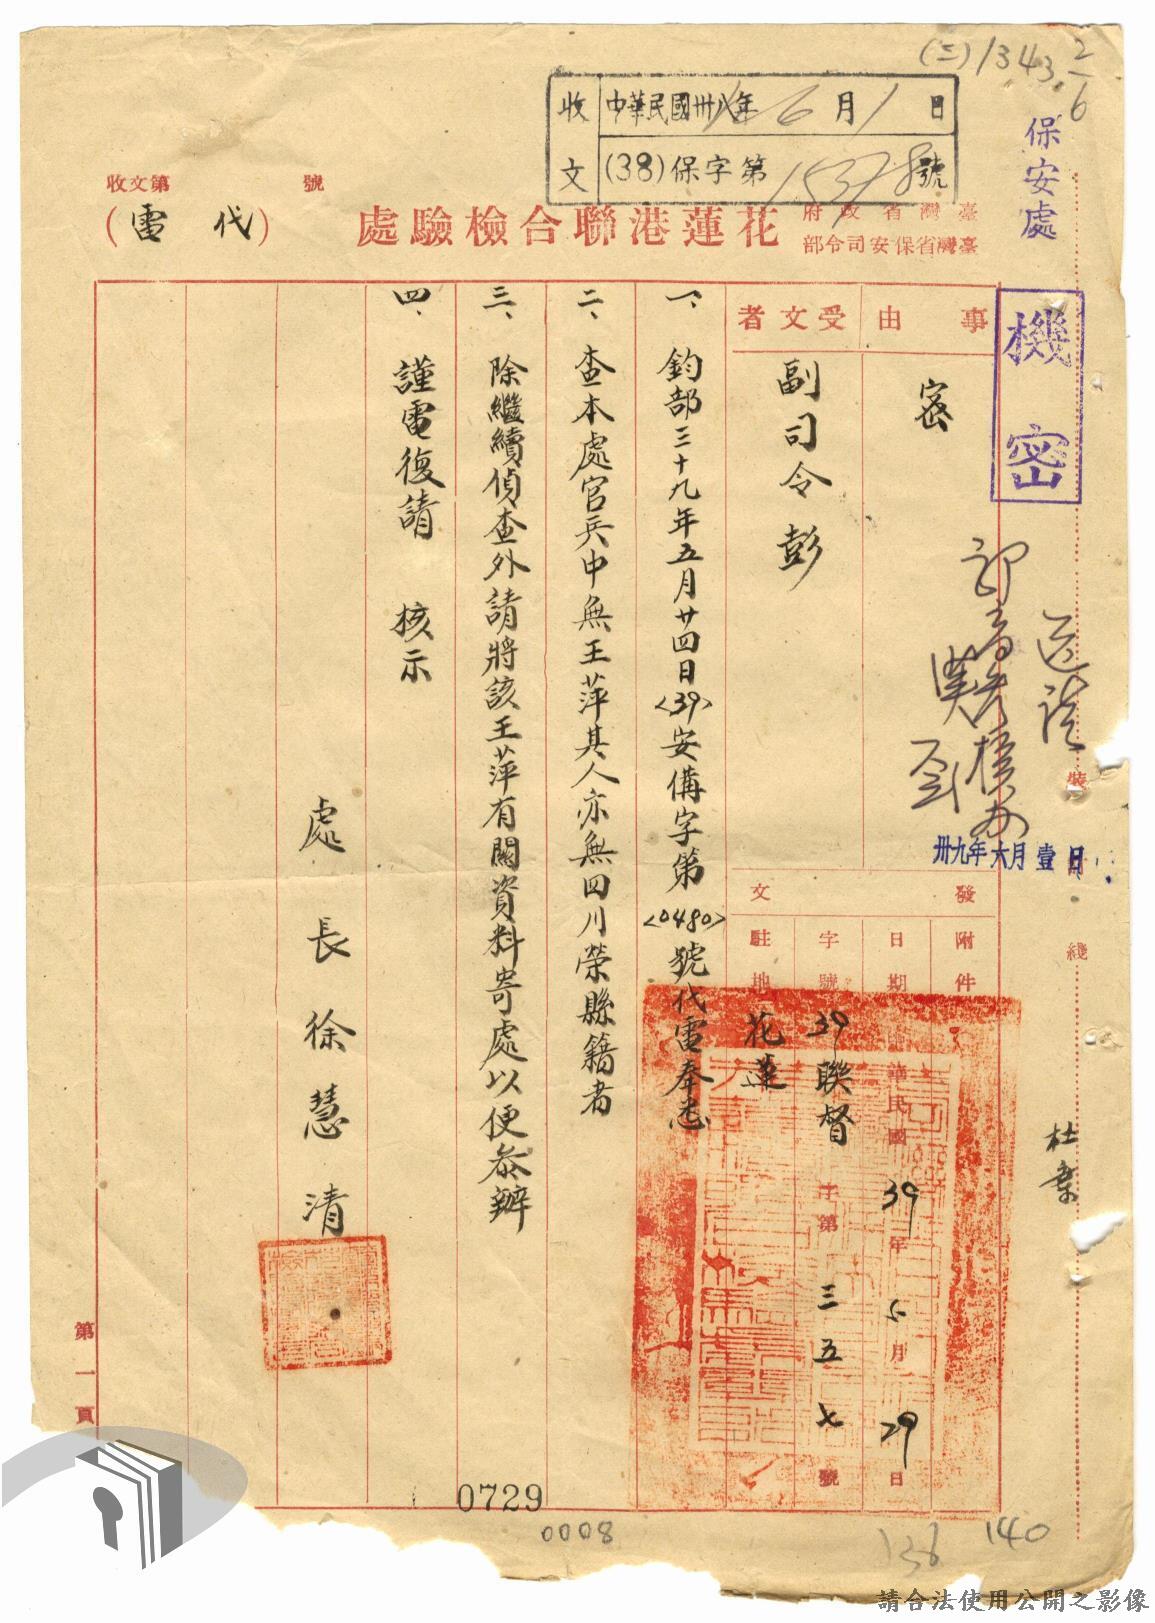 (三)1343 2/6
收文
中華民國卅八年6月1日
(38)保字第15378號
保安處
機密
收文第 號
(代電)
臺灣省政府
臺灣省保安司令部
花蓮港聯合檢驗處
事由
密
受文者
副司令彭
發文
附件
日期
中華民國39年5月29日
字號
39聯督字第三五七號
駐地
花蓮
一、鈞部三十九年五月廿四日<39>安倩字第<0480>號代電奉悉
二、查本處官兵中無王萍其人亦無四川榮縣籍者
三、除繼續偵查外請將該王萍有關資料寄處以便參辦
四、謹電復請 核示
處長徐慧清
卅九年六月壹日
裝
綫
第一頁
0729
0008
136
140
請合法使用公開之影像